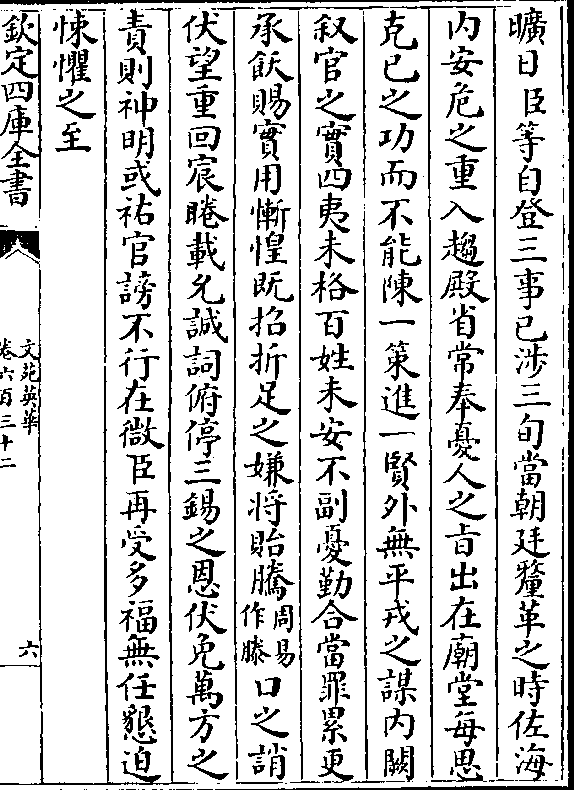 曠日臣等自登三事已涉三旬當朝廷釐革之時佐海
内安危之重入趨殿省常奉憂人之旨出在廟堂每思
克已之功而不能陳一策進一賢外無平戎之謀内闕
叙官之實四夷未格百姓未安不副憂勤合當罪累更
承飫賜實用慚惶既招折足之嫌將貽騰周易作滕口之誚
伏望重回宸睠載允誠詞俯停三錫之恩伏免萬方之
責則神明或祐官謗不行在微臣再受多福無任懇迫
悚懼之至
欽定四庫全書
文苑英華
卷六百三十二
六